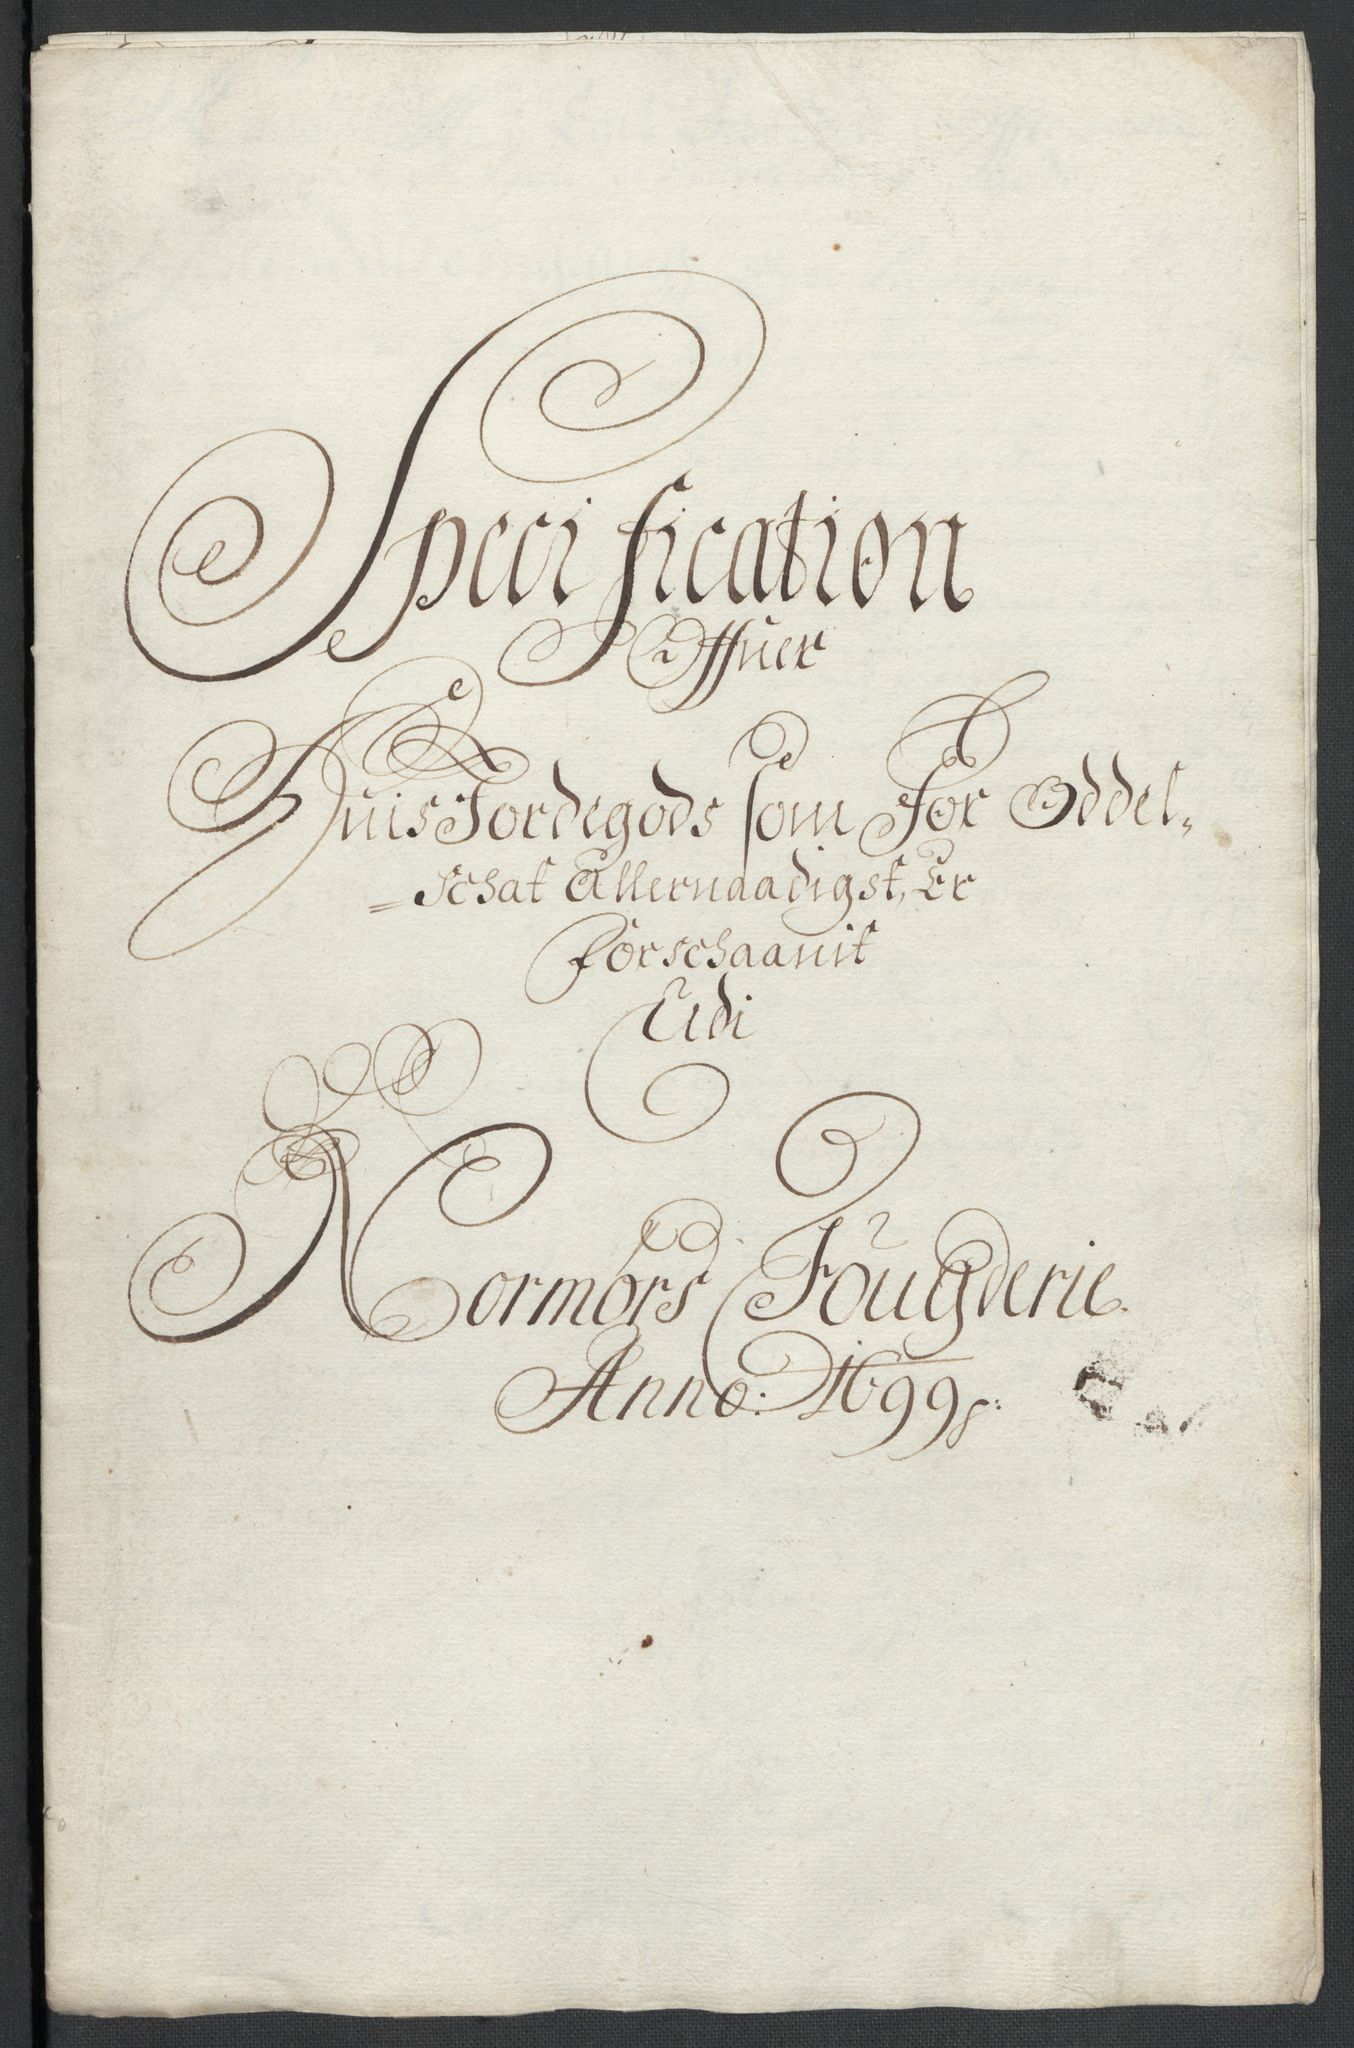 Specification
Offuer
Huis Jordegods som For Oddel„
=schat Allernaadigst, Er
Forschaanit
Udi
Normørs Fougderie.
Anno: 1699